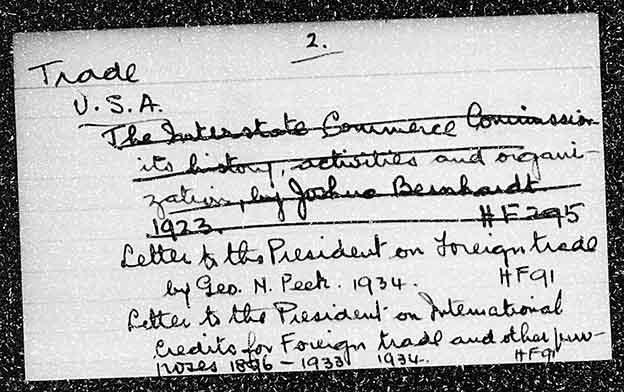 2.
Trade
U.S.A.
The Interstate Commerce Commission
its history, activities and organi-
zation, by Joshua Bernhardt
1923. HF295
Letter to the President on Foreign trade
by Geo. N. Peek. 1934. HF91
Letter to the President on International
Credits for Foreign trade and other pur-
poses 1896-1933 1934. HF91